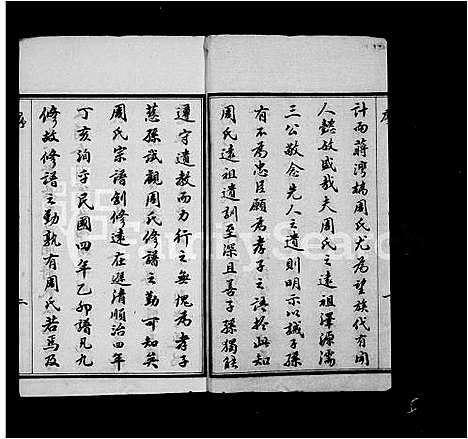 計而蔣灣橋周氏尤為望族代有聞
人懿歟盛哉夫周氏之遠祖澤源濡
三公敬念先人之遺則明示以誡子孫
有不為忠臣願為孝子之語於此知
周氏遠祖遺訓至深且善子孫獨能
遵守遺教而力行之無愧為孝子
慈孫試觀周氏修譜之勤可知矣
周氏宗譜創修遠在遜清順治四年
丁亥洵守民國四年乙卯譜凡九
修故修譜之勤孰有周氏若焉及
序